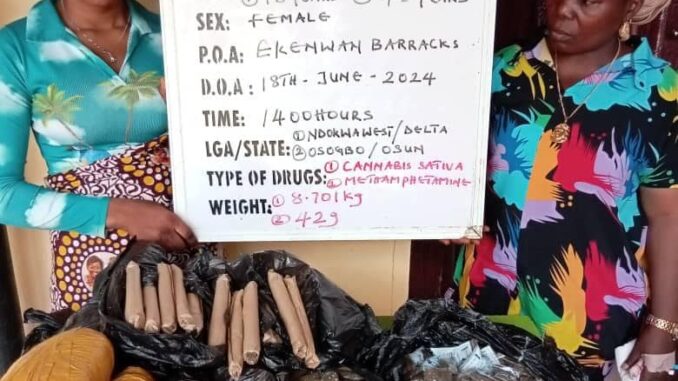 SEX: FEMALE
P.O.A: EKENWAN BARRACKS
D.O.A: 18TH - JUNE - 2024
TIME: 1400HOURS
LGA/STATE: ① NDOKWA WEST/DELTA
② OSOGBO/OSUN
TYPE OF DRUGS: ① CANNABIS SATIVA
② METHAMPHETAMINE
WEIGHT: ① 8.701kg
② 42g